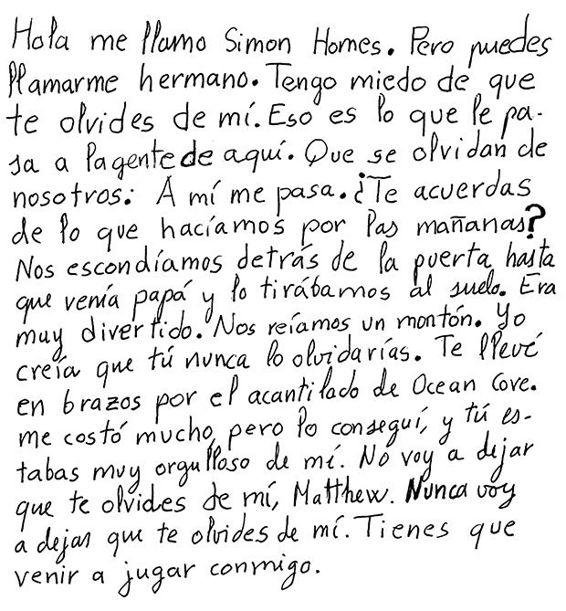 Hola me llamo Simon Homes. Pero puedes
llamarme hermano. Tengo miedo de que
te olvides de mí. Eso es lo que le pa-
sa a la gente de aquí. Que se olvidan de
nosotros. A mí me pasa. ¿Te acuerdas
de lo que hacíamos por las mañanas?
Nos escondíamos detrás de la puerta hasta
que venía papá y lo tirábamos al suelo. Era
muy divertido. Nos reíamos un montón. Yo
creía que tú nunca lo olvidarías. Te llevé
en brazos por el acantilado de Ocean Cove.
me costó mucho, pero lo conseguí, y tú es-
tabas muy orgulloso de mí. No voy a dejar
que te olvides de mí, Matthew. Nunca voy
a dejar que te olvides de mí. Tienes que
venir a jugar conmigo.